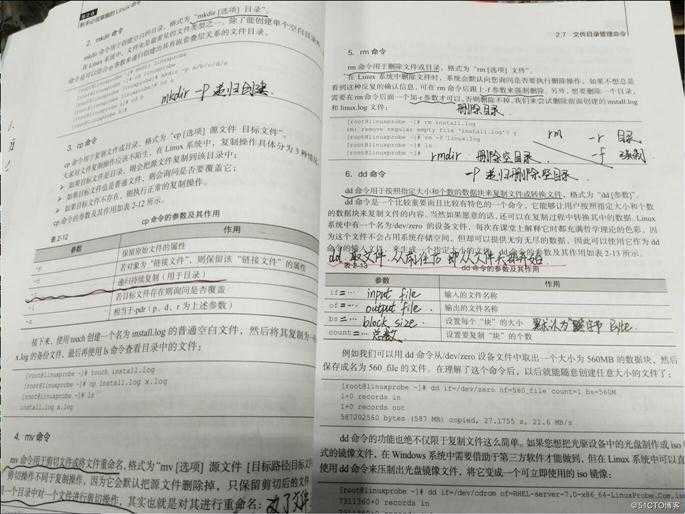 2. mkdir 命令
mkdir 命令用于创建空白的目录，格式为“mkdir [选项] 目录”。
在 Linux 系统中，文件夹是最常见的文件类型之一。除了能创建单个空白目录外，
mkdir -p 递归创建.
3. cp 命令
cp 命令用于复制文件或目录，格式为“cp [选项] 源文件 目标文件”。
大家对文件复制操作应该不陌生，在 Linux 系统中，复制操作具体分为 3 种情况：
➢ 如果目标文件是目录，则会把源文件复制到该目录中；
➢ 如果目标文件也是普通文件，则会询问是否要覆盖它；
➢ 如果目标文件不存在，则执行正常的复制操作。
cp 命令的参数及其作用如表 2-12 所示。
表 2-12 cp 命令的参数及其作用
参数 作用
保留原始文件的属性
若对象为“链接文件”，则保留该“链接文件”的属性
递归持续复制（用于目录）
若目标文件存在则询问是否覆盖
相当于-pdr（p、d、r 为上述参数）
接下来，使用 touch 创建一个名为 install.log 的普通空白文件，然后将其复制为一
x.log 的备份文件，最后再使用 ls 命令查看目录中的文件：
[root@linuxprobe ~]# touch install.log
[root@linuxprobe ~]# cp install.log x.log
[root@linuxprobe ~]# ls
install.log x.log
4. mv 命令
mv 命令用于剪切文件或将文件重命名，格式为“mv [选项] 源文件 [目标路径|目标文件
剪切操作不同于复制操作，因为它会默认把源文件删除掉，只保留剪切后的文件
一个目录中对一个文件进行剪切操作，其实也就是对其进行重命名：
2.7 文件目录管理命令
5. rm 命令
rm 命令用于删除文件或目录，格式为“rm [选项] 文件”。
在 Linux 系统中删除文件时，系统会默认向您询问是否要执行删除操作，如果不想总是
看到这种反复的确认信息，可在 rm 命令后跟上-f 参数来强制删除。另外，想要删除一个目录，
需要在 rm 命令后面一个加-r 参数才可以，否则删除不掉。我们来尝试删除前面创建的 install.log
和 linux.log 文件：
删除目录.
[root@linuxprobe ~]# rm install.log
rm: remove regular empty file 'install.log'? y
rm -r 目录
-f 强制
rmdir 删除空目录.
-p 递归删除空目录.
6. dd 命令
dd 命令用于按照指定大小和个数的数据块来复制文件或转换文件，格式为“dd [参数]”。
dd 命令是一个比较重要而且比较有特色的一个命令，它能够让用户按照指定大小和个数
的数据块来复制文件的内容。当然如果愿意的话，还可以在复制过程中转换其中的数据。Linux
系统中有一个名为/dev/zero 的设备文件，每次在课堂上解释它时都充满哲学理论的色彩。因
为这个文件不会占用系统存储空间，但却可以提供无穷无尽的数据，因此可以使用它作为 dd
dd 取文件，从前往后
表 2-13 dd 命令的参数及其作用
参数 作用
if=… input file 输入的文件名称
of=… output file. 输出的文件名称
bs=… block size. 设置每个“块”的大小
count=… 总数 设置要复制“块”的个数
例如我们可以用 dd 命令从/dev/zero 设备文件中取出一个大小为 560MB 的数据块，然后
保存成名为 560_file 的文件。在理解了这个命令后，以后就能随意创建任意大小的文件了：
[root@linuxprobe ~]# dd if=/dev/zero of=560_file count=1 bs=560M
1+0 records in
1+0 records out
587202560 bytes (587 MB) copied, 27.1755 s, 21.6 MB/s
dd 命令的功能也绝不仅限于复制文件这么简单。如果您想把光驱设备中的光盘制作成 iso 格
式的镜像文件，在 Windows 系统中需要借助于第三方软件才能做到，但在 Linux 系统中可以直
使用 dd 命令来压制出光盘镜像文件，将它变成一个可立即使用的 iso 镜像：
[root@linuxprobe ~]# dd if=/dev/cdrom of=RHEL-server-7.0-x86_64-LinuxProbe.Com.iso
7311360+0 records in
@51CTO博客